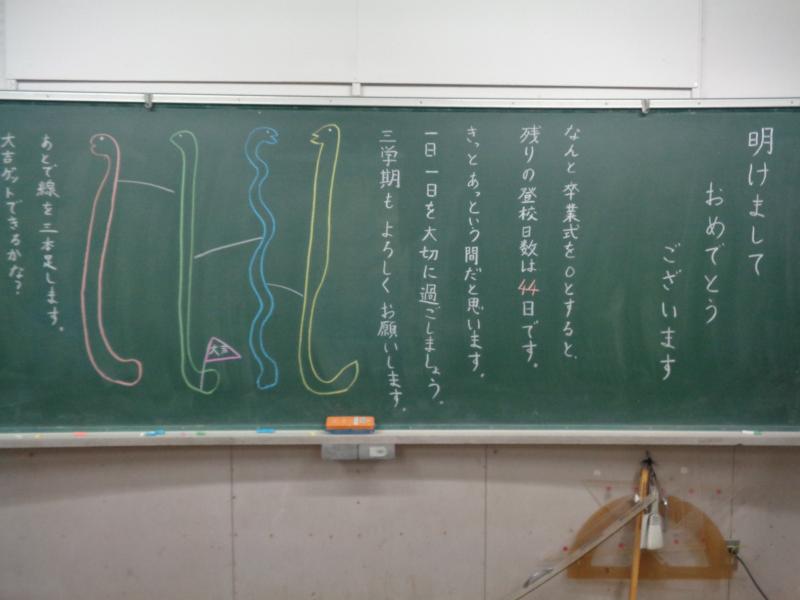 明けまして
おめでとう
ございます
なんと卒業式を0とすると、
残りの登校日数は44日です。
きっとあっという間だと思います。
一日一日を大切に過ごしましょう。
三学期もよろしくお願いします。
大吉
あとで線を三本足します。
大吉ゲットできるかな？